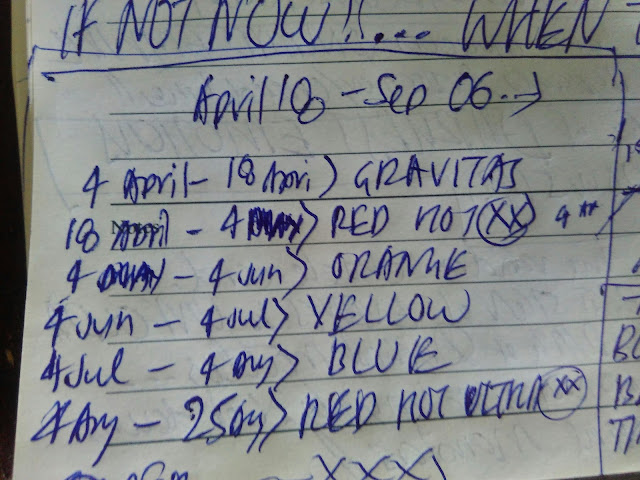 IF NOT NOW!!... WHEN
April 18 - Sep 06 ->
4 April - 18 April) GRAVITAS
18 April - 4 MAY) RED HOT XX 4 **
4 MAY - 4 Jun) ORANGE
4 Jun - 4 Jul) YELLOW
4 Jul - 4 Aug) BLUE
4 Aug - 25 Aug) RED HOT ULTRA XX
XXX)